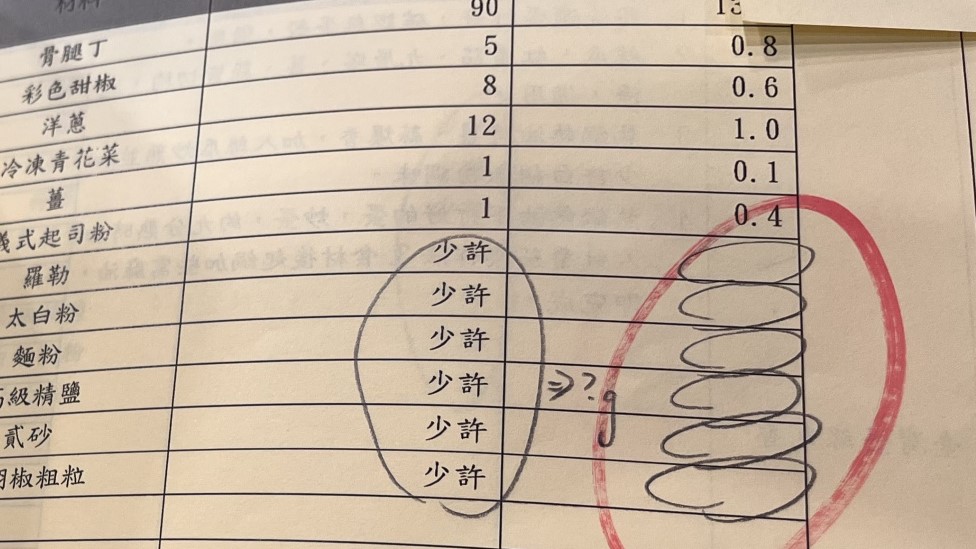 材料
骨腿丁 90
彩色甜椒 5 0.8
洋蔥 8 0.6
冷凍青花菜 12 1.0
薑 1 0.1
式起司粉 1 0.4
羅勒 少許
太白粉 少許
麵粉 少許
級精鹽 少許 ⇒?g
貳砂 少許
胡椒粗粒 少許